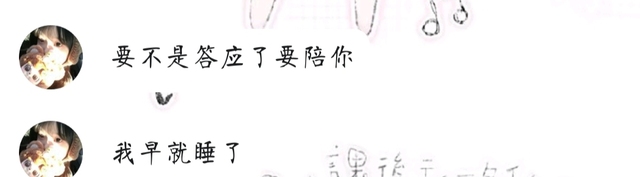 要不是答应了要陪你
我早就睡了